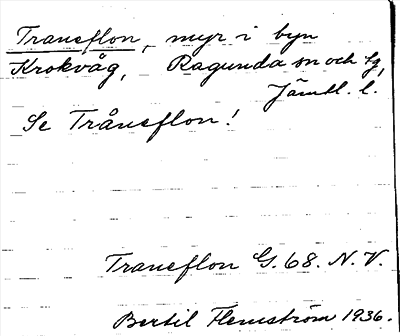 Traneflon, myr i byn
Krokvåg, Ragunda sn och tg,
Jämtl. l.
Se Tråneflon!
Traneflon G. 68. N. V.
Bertil Flemström 1936.